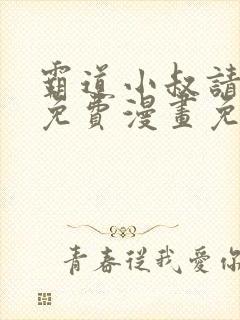 霸道小叔請
免費漫畫免
青春從我愛你